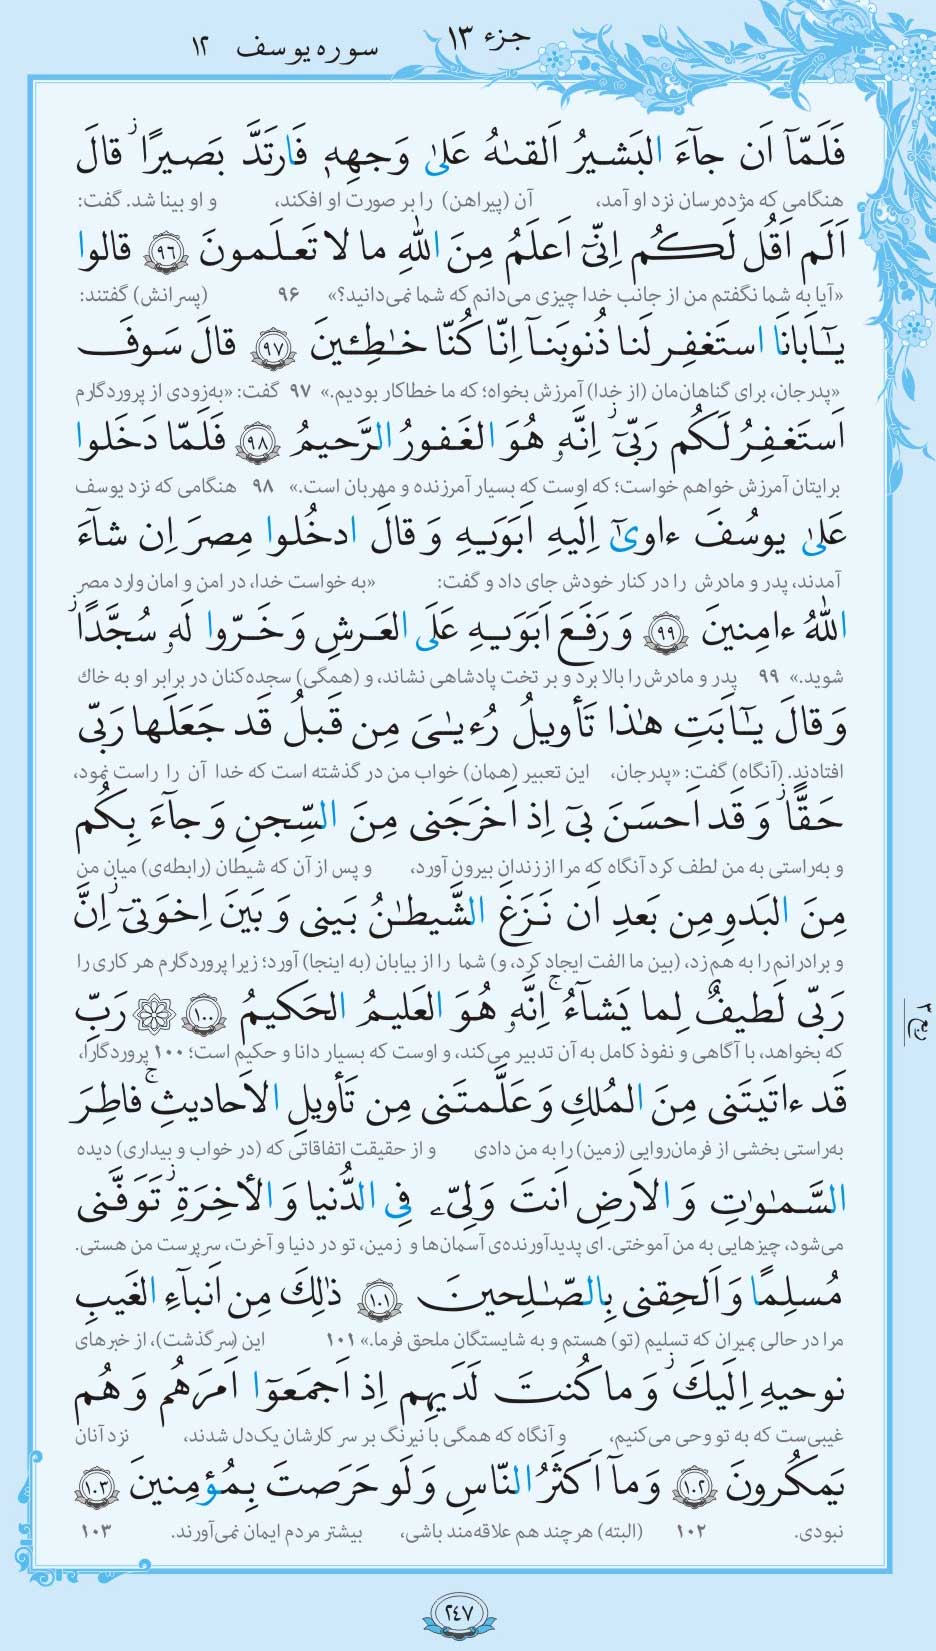 جزء ۱۳
سوره یوسف ۱۲
فَلَمّآ اَن جآءَ البَشیرُ اَلقىٰهُ عَلىٰ وَجهِهٖ فَارتَدَّ بَصیرًا ۖ قالَ
هنگامی که مژده‌رسان نزد او آمد، آن (پیراهن) را بر صورت او افکند، و او بینا شد. گفت:
اَلَم اَقُل لَکُم اِنّیٓ اَعلَمُ مِنَ اللّٰهِ ما لا تَعلَمونَ ﴿۹۶﴾ قالوا
«آیا به شما نگفتم من از جانب خدا چیزی می‌دانم که شما نمی‌دانید؟» ۹۶ (پسرانش) گفتند:
یٰٓاَبانَا استَغفِر لَنا ذُنوبَنآ اِنّا کُنّا خٰطِئینَ ﴿۹۷﴾ قالَ سَوفَ
«پدرجان، برای گناهان‌مان (از خدا) آمرزش بخواه؛ که ما خطاکار بودیم.» ۹۷ گفت: «به‌زودی از پروردگارم
اَستَغفِرُ لَکُم رَبّیٓ ۖ اِنَّهٗ هُوَ الغَفورُ الرَّحیمُ ﴿۹۸﴾ فَلَمّا دَخَلوا
برایتان آمرزش خواهم خواست؛ که اوست که بسیار آمرزنده و مهربان است.» ۹۸ هنگامی که نزد یوسف
عَلىٰ یوسُفَ ءاوىٰٓ اِلَیهِ اَبَوَیهِ وَ قالَ ادخُلوا مِصرَ اِن شآءَ
آمدند، پدر و مادرش را در کنار خودش جای داد و گفت: «به خواست خدا، در امن و امان وارد مصر
اللّٰهُ ءامِنینَ ﴿۹۹﴾ وَ رَفَعَ اَبَوَیهِ عَلَی العَرشِ وَ خَرّوا لَهٗ سُجَّدًا ۖ
شوید.» ۹۹ پدر و مادرش را بالا برد و بر تخت پادشاهی نشاند، و (همگی) سجده‌کنان در برابر او به خاک
وَ قالَ یٰٓاَبَتِ هٰذا تَأویلُ رُءیٰیَ مِن قَبلُ قَد جَعَلَها رَبّی
افتادند. (آنگاه) گفت: «پدرجان، این تعبیر (همان) خواب من در گذشته است که خدا آن را راست نمود،
حَقًّا ۖ وَ قَد اَحسَنَ بیٓ اِذ اَخرَجَنی مِنَ السِّجنِ وَ جآءَ بِکُم
و به‌راستی به من لطف کرد آنگاه که مرا از زندان بیرون آورد، و پس از آن که شیطان (رابطه‌ی) میان من
مِنَ البَدوِ مِن بَعدِ اَن نَزَغَ الشَّیطٰنُ بَینی وَ بَینَ اِخوَتیٓ ۖ اِنَّ
و برادرانم را به هم زد، (بین ما الفت ایجاد کرد، و) شما را از بیابان (به اینجا) آورد؛ زیرا پروردگارم هر کاری را
رَبّی لَطیفٌ لِما یَشآءُ ۚ اِنَّهٗ هُوَ العَلیمُ الحَکیمُ ﴿۱۰۰﴾ ۞ رَبِّ
که بخواهد، با آگاهی و نفوذ کامل به آن تدبیر می‌کند، و اوست که بسیار دانا و حکیم است؛ ۱۰۰ پروردگارا،
ربع ۳
قَد ءاتَیتَنی مِنَ المُلکِ وَ عَلَّمتَنی مِن تَأویلِ الاَحادیثِ ۚ فاطِرَ
به‌راستی بخشی از فرمان‌روایی (زمین) را به من دادی و از حقیقت اتفاقاتی که (در خواب و بیداری) دیده
السَّمٰوٰتِ وَ الاَرضِ اَنتَ وَلِیّٖ فِی الدُّنیا وَ الأخِرَةِ ۖ تَوَفَّنی
می‌شود، چیزهایی به من آموختی. ای پدیدآورنده‌ی آسمان‌ها و زمین، تو در دنیا و آخرت، سرپرست من هستی.
مُسلِمًا وَ اَلحِقنی بِالصّٰلِحینَ ﴿۱۰۱﴾ ذٰلِکَ مِن اَنبآءِ الغَیبِ
مرا در حالی بمیران که تسلیم (تو) هستم و به شایستگان ملحق فرما.» ۱۰۱ این (سرگذشت)، از خبرهای
نوحیهِ اِلَیکَ ۖ وَ ما کُنتَ لَدَیهِم اِذ اَجمَعوٓا اَمرَهُم وَ هُم
غیبی‌ست که به تو وحی می‌کنیم، و آنگاه که همگی با نیرنگ بر سر کارشان یک‌دل شدند، نزد آنان
یَمکُرونَ ﴿۱۰۲﴾ وَ مآ اَکثَرُ النّاسِ وَ لَو حَرَصتَ بِمُؤمِنینَ ﴿۱۰۳﴾
نبودی. ۱۰۲ (البته) هرچند هم علاقه‌مند باشی، بیشتر مردم ایمان نمی‌آورند. ۱۰۳
۲۴۷